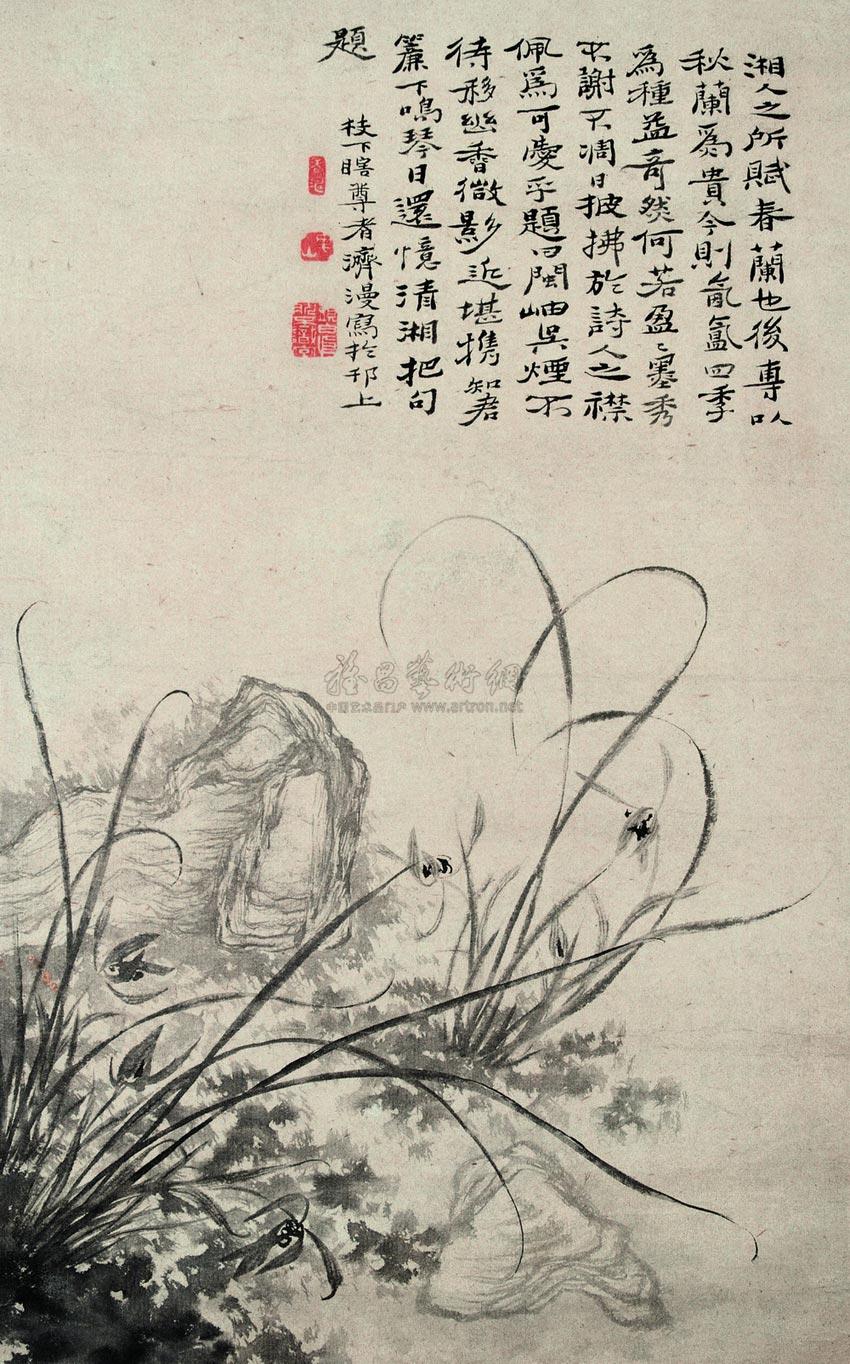 湘人之所賦春蘭也後專以
秋蘭為貴今則氤氳四季
為種益奇然何若盈盈墨秀
不謝不凋日披拂於詩人之襟
佩為可慶乎題曰閩岫吳煙不
待移幽香微影近堪攜知君
簾下鳴琴日還憶清湘把句
題
枝下瞎尊者濟漫寫於邗上
雅昌藝術網
中国艺术品门户 www.artron.net